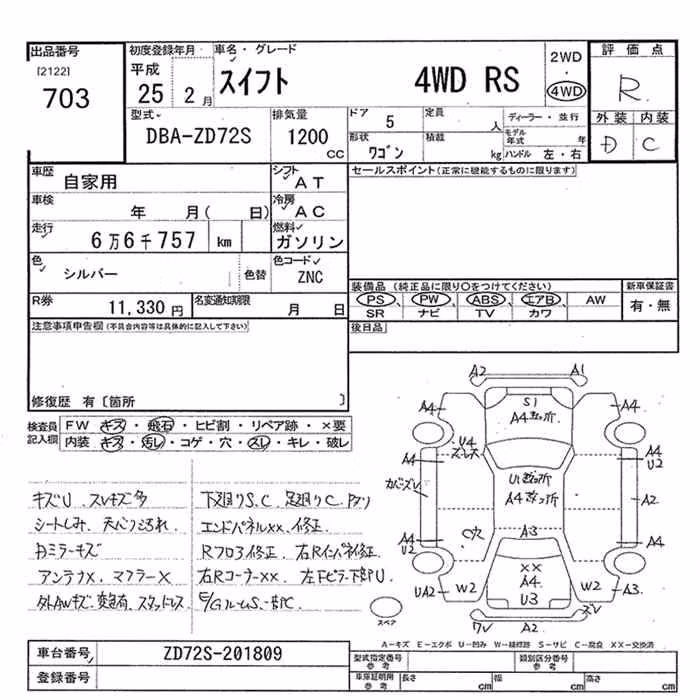 出品番号 初度登録年月 車名・グレード 2WD 評価点
[2122] 平成 スイフト 4WD RS ・
703 25 2月 4WD R
型式 排気量 ドア 5 定員 人 ディーラー・並行 外装 内装
DBA-ZD72S 1200 cc 形状 ワゴン 積載 kg モデル年式 年 D C
ハンドル 左・右
車歴 自家用 シフト AT セールスポイント(正常に機能するものに限ります)
車検 年 月( 日) 冷房 AC
走行 6万6千757 km 燃料 ガソリン
色 シルバー 色替 色コード ZNC
装備品 (純正品に限り○をつけてください) 新車保証書
R券 11,330円 名変通知期限 月 日 PS PW ABS エアB AW 有・無
SR ナビ TV カワ
注意事項申告欄(不具合内容等は具体的に記入して下さい) 後日品
修復歴 有〔箇所 〕
検査員 FW キズ・飛石・ヒビ割・リペア跡・×要
記入欄 内装 キズ・汚レ・コゲ・穴・スレ・キレ・破レ
キズU スレキズ多 下廻りS,C
シートしみ エンドパネル××、修正
ミラーキズ
アンテナX、マフラーX 右Rコーナー×× 左Fピラー下部U
スタッドレス
A2 A1
A4 S1 A4
A4
A4 U4 A4
ズレ U2
カバーズレ U A4 A2
C穴 A3
A4 A4
U2 ××
A4
UA2 W2 U3 W2 A3
スペア ワレ A2 ズレ
A-キズ E-エクボ U-凹み W-補修跡 S-サビ C-腐食 ××-交換済
車台番号 ZD72S-201809 型式指定番号 参考 類別区分番号 参考
登録番号 車庫証明用 参考 長さ cm 幅 cm 高さ cm